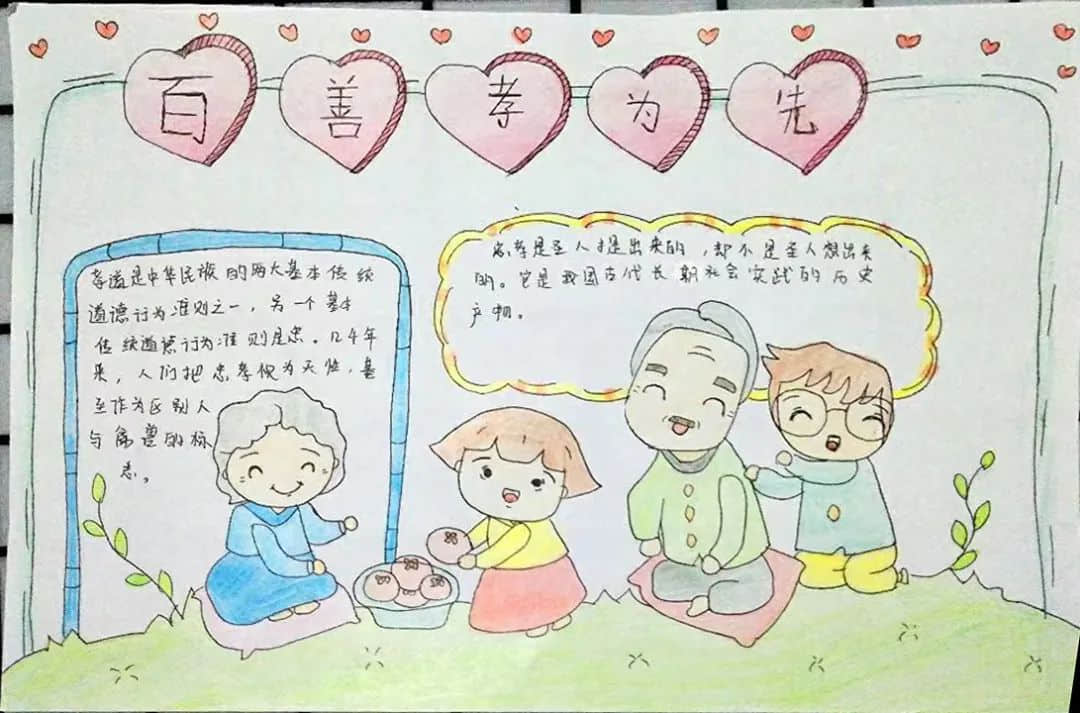 百善孝为先
孝道是中华民族的两大基本传统
道德行为准则之一，另一个基本
传统道德行为准则是忠。几千年
来，人们把忠孝视为天性，甚
至作为区别人
与禽兽的标
志。
忠孝是圣人提出来的，却不是圣人想出来
的。它是我国古代长期社会实践的历史
产物。